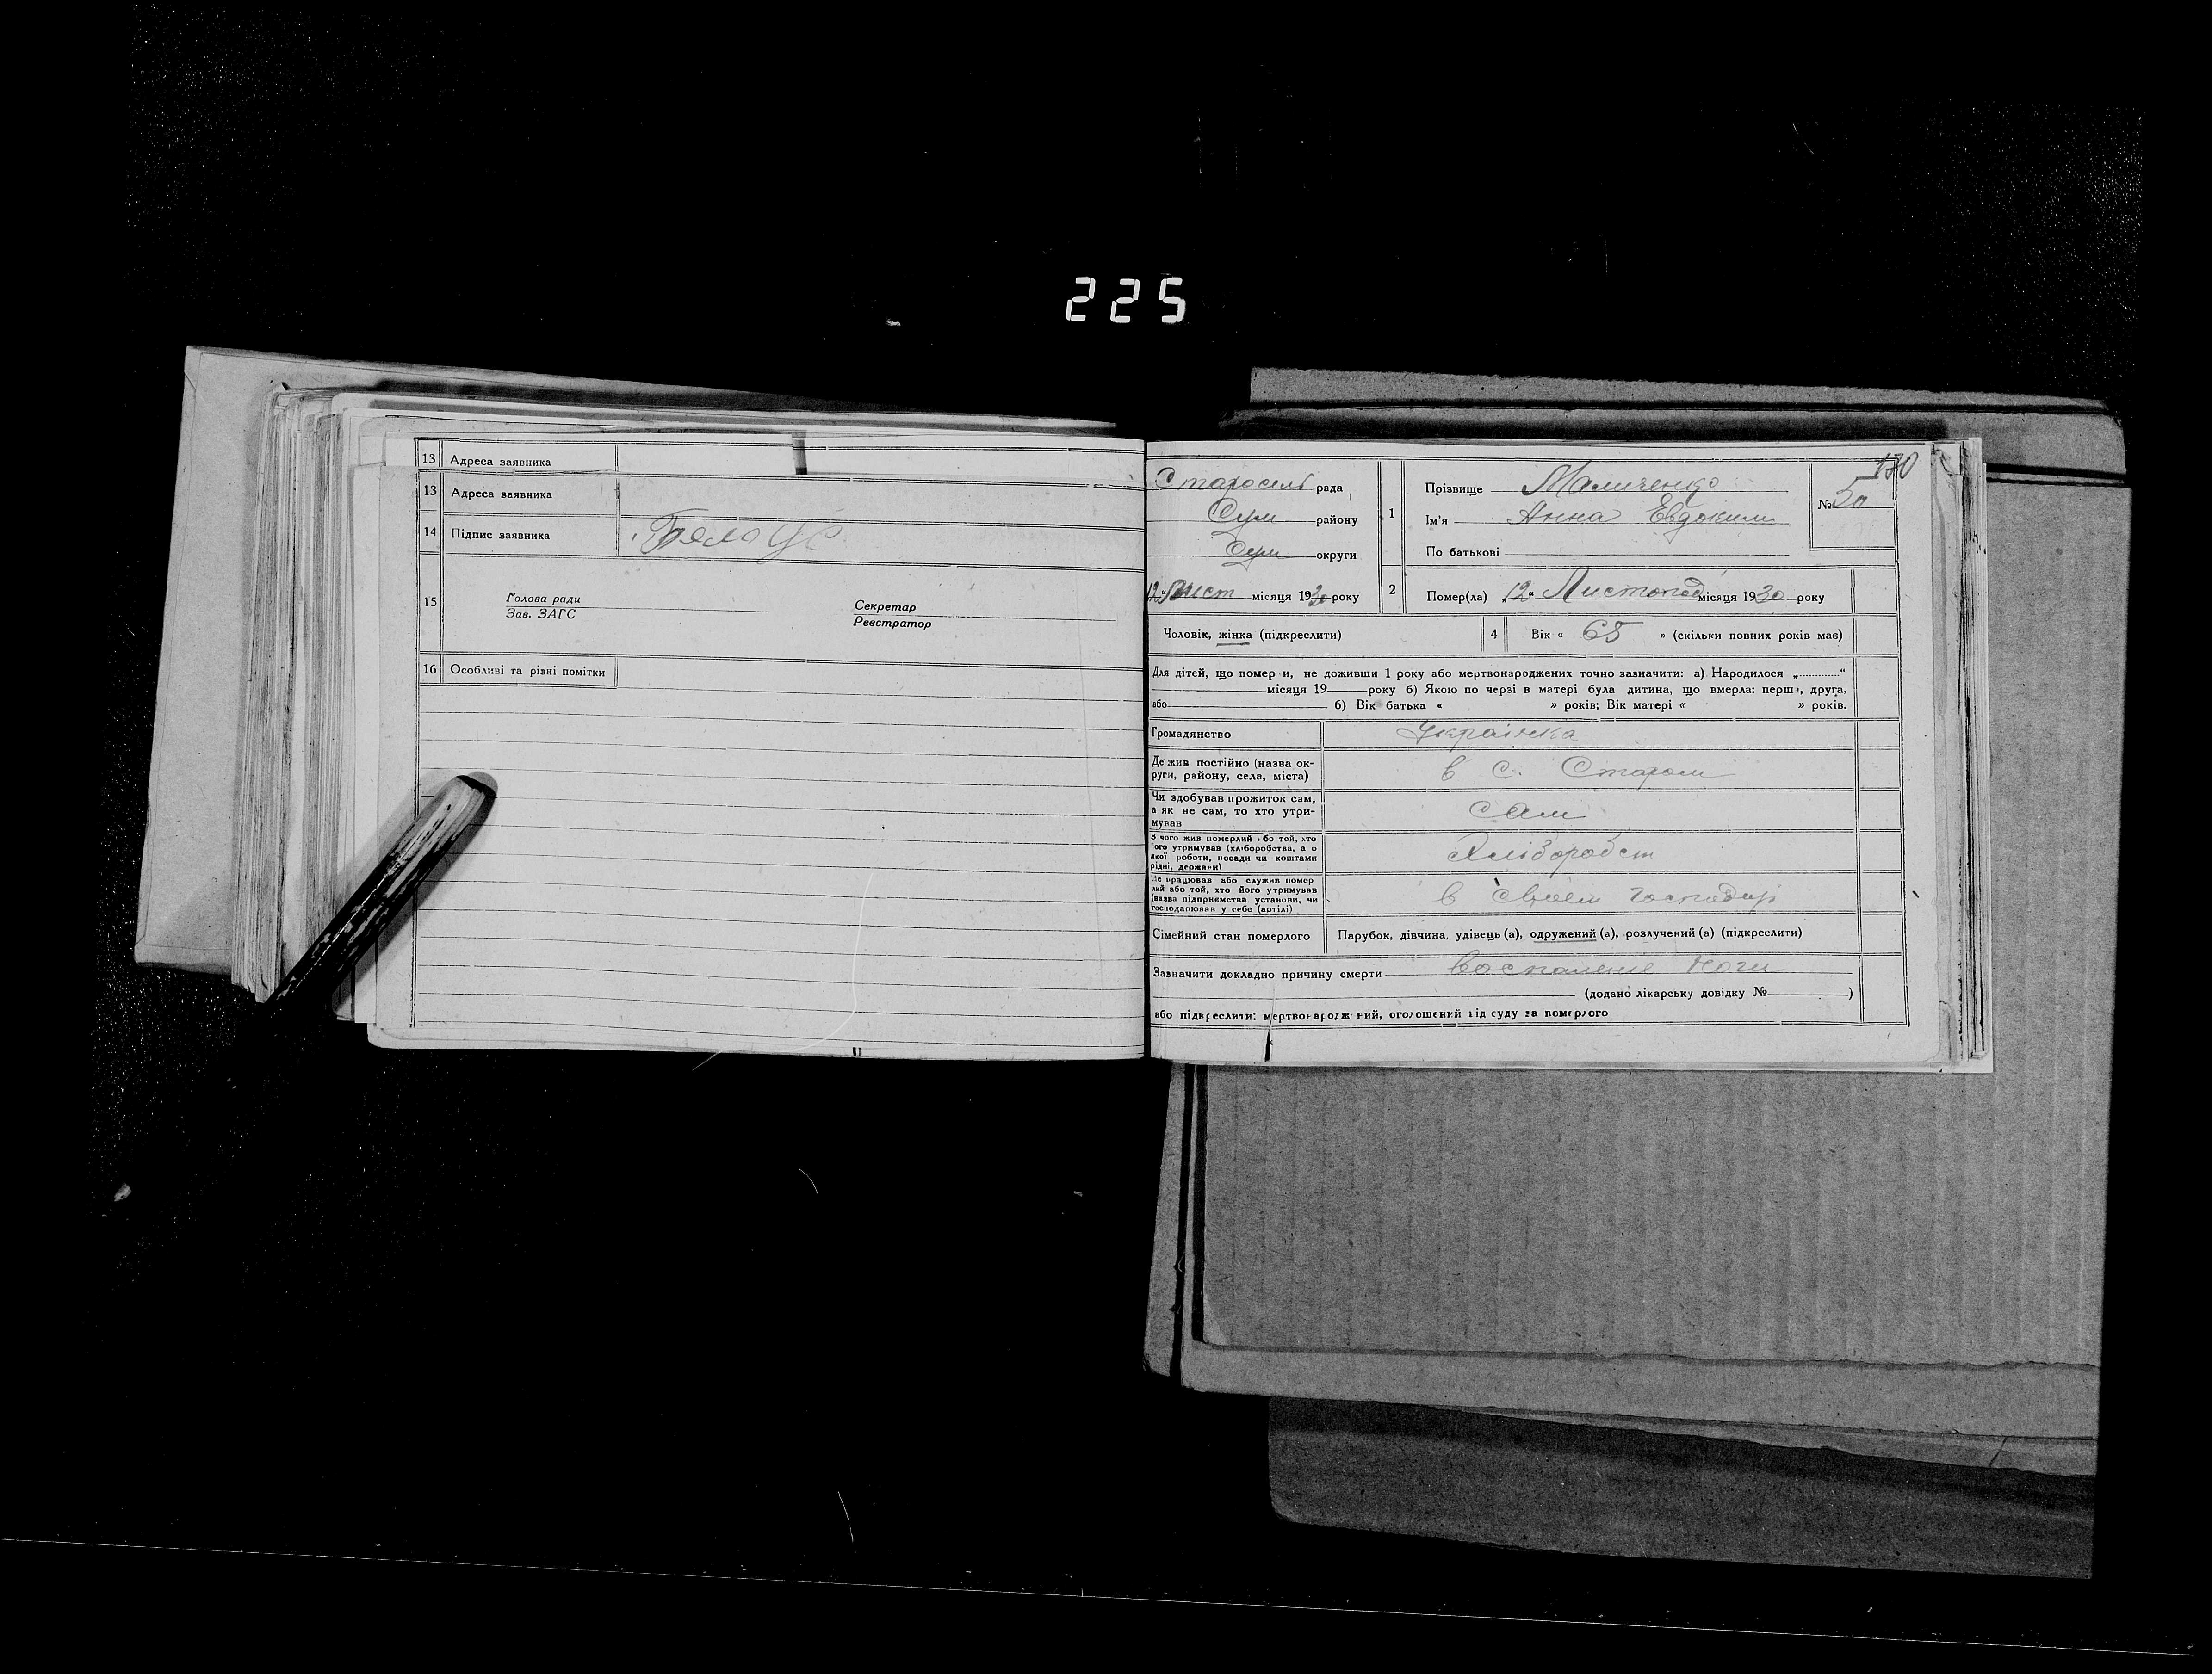 225
13 Адреса заявника
13 Адреса заявника
14 Підпис заявника Бєлоус
15 Голова ради Секретар
Зав. ЗАГС Реєстратор
16 Особливі та різні помітки
130
Старосель рада
Сум району
Сум округи
12 " Лист місяця 1930 року
1 Прізвище Маличенко
Ім'я Анна Евдоким
По батькові
№ 50
2 Помер(ла) „12" Листопад місяця 1930 року
Чоловік, жінка (підкреслити)
4 Вік « 65 » (скільки повних років має)
Для дітей, що померли, не доживши 1 року або мертвонароджених точно зазначити: а) Народилося „............"
місяця 19 року б) Якою по черзі в матері була дитина, що вмерла: перша, друга,
або б) Вік батька « » років; Вік матері « » років.
Громадянство Украінка
Де жив постійно (назва ок-
руги, району, села, міста) в с. Старом
Чи здобував прожиток сам,
а як не сам, то хто утри-
мував сам
З чого жив померлий або той, хто
його утримував (хліборобства, а о
якої роботи, посади чи коштами
рідні, держави) Хлібороб
Де працював або служив помер
лий або той, хто його утримував
(назва підприємства, установи, чи
господарював у себе (артілі) в своем господар
Сімейний стан померлого Парубок, дівчина, удівець (а), одружений (а), розлучений (а) (підкреслити)
Зазначити докладно причину смерти воспаление ноги
(додано лікарську довідку № )
або підкреслити: мертвонароджений, оголошений від суду за померлого